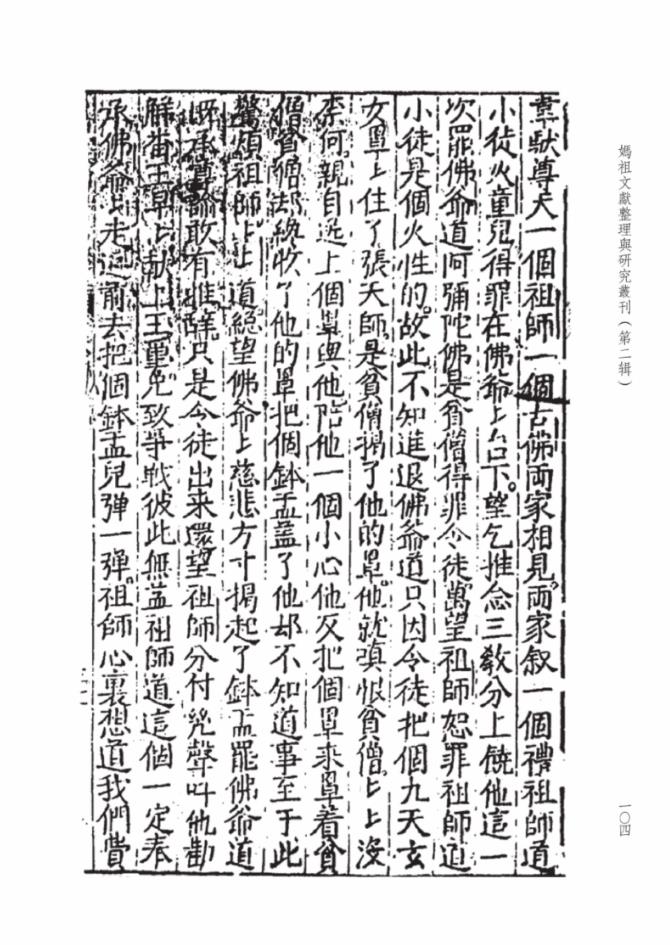 媽祖文獻整理與研究叢刊（第二輯）
韋馱尊天一個祖師一個古佛兩家相見兩家叙一個禮祖師道
小徒火童兒得罪在佛爺〻台下望乞推念三教分上饒他這一
次罷佛爺道阿彌陀佛是貧僧得罪令徒萬望祖師恕罪祖師道
小徒是個火性的故此不知進退佛爺道只因令徒把個九天玄
女罩〻住了張天師是貧僧揭了他的罩他就嗔恨貧僧〻〻沒
柰何親自送上個罩與他陪他一個小心他反把個罩来罩着貧
僧貧僧却纔收了他的罩把個鉢盂蓋了他却不知道事至于此
驚煩祖師〻〻道絕望佛爺〻慈悲方寸揭起了鉢盂罷佛爺道
既承尊諭敢有推辞只是令徒出来還望祖師分付聲叫他勸
解番王早〻献上玉璽免致爭戰彼此無益祖師道這個一定奉
承佛爺〻走近前去把個鉢盂兒弹一弹祖師心裏想道我們費
一〇四